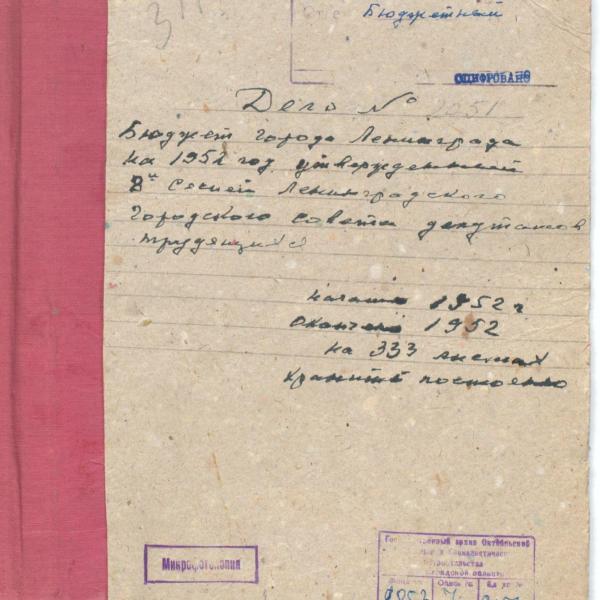 Бюджетный
ОЦИФРОВАНО
Дело № 2051
Бюджет города Ленинграда
на 1952 год утвержденный
8й Сессией Ленинградского
городского совета депутатов
трудящихся
начато 1952 г
окончено 1952
на 333 листах
хранить постоянно
Государственный архив Октябрьской
и Социалистическ
строительства
градской области
Микрофотокопия